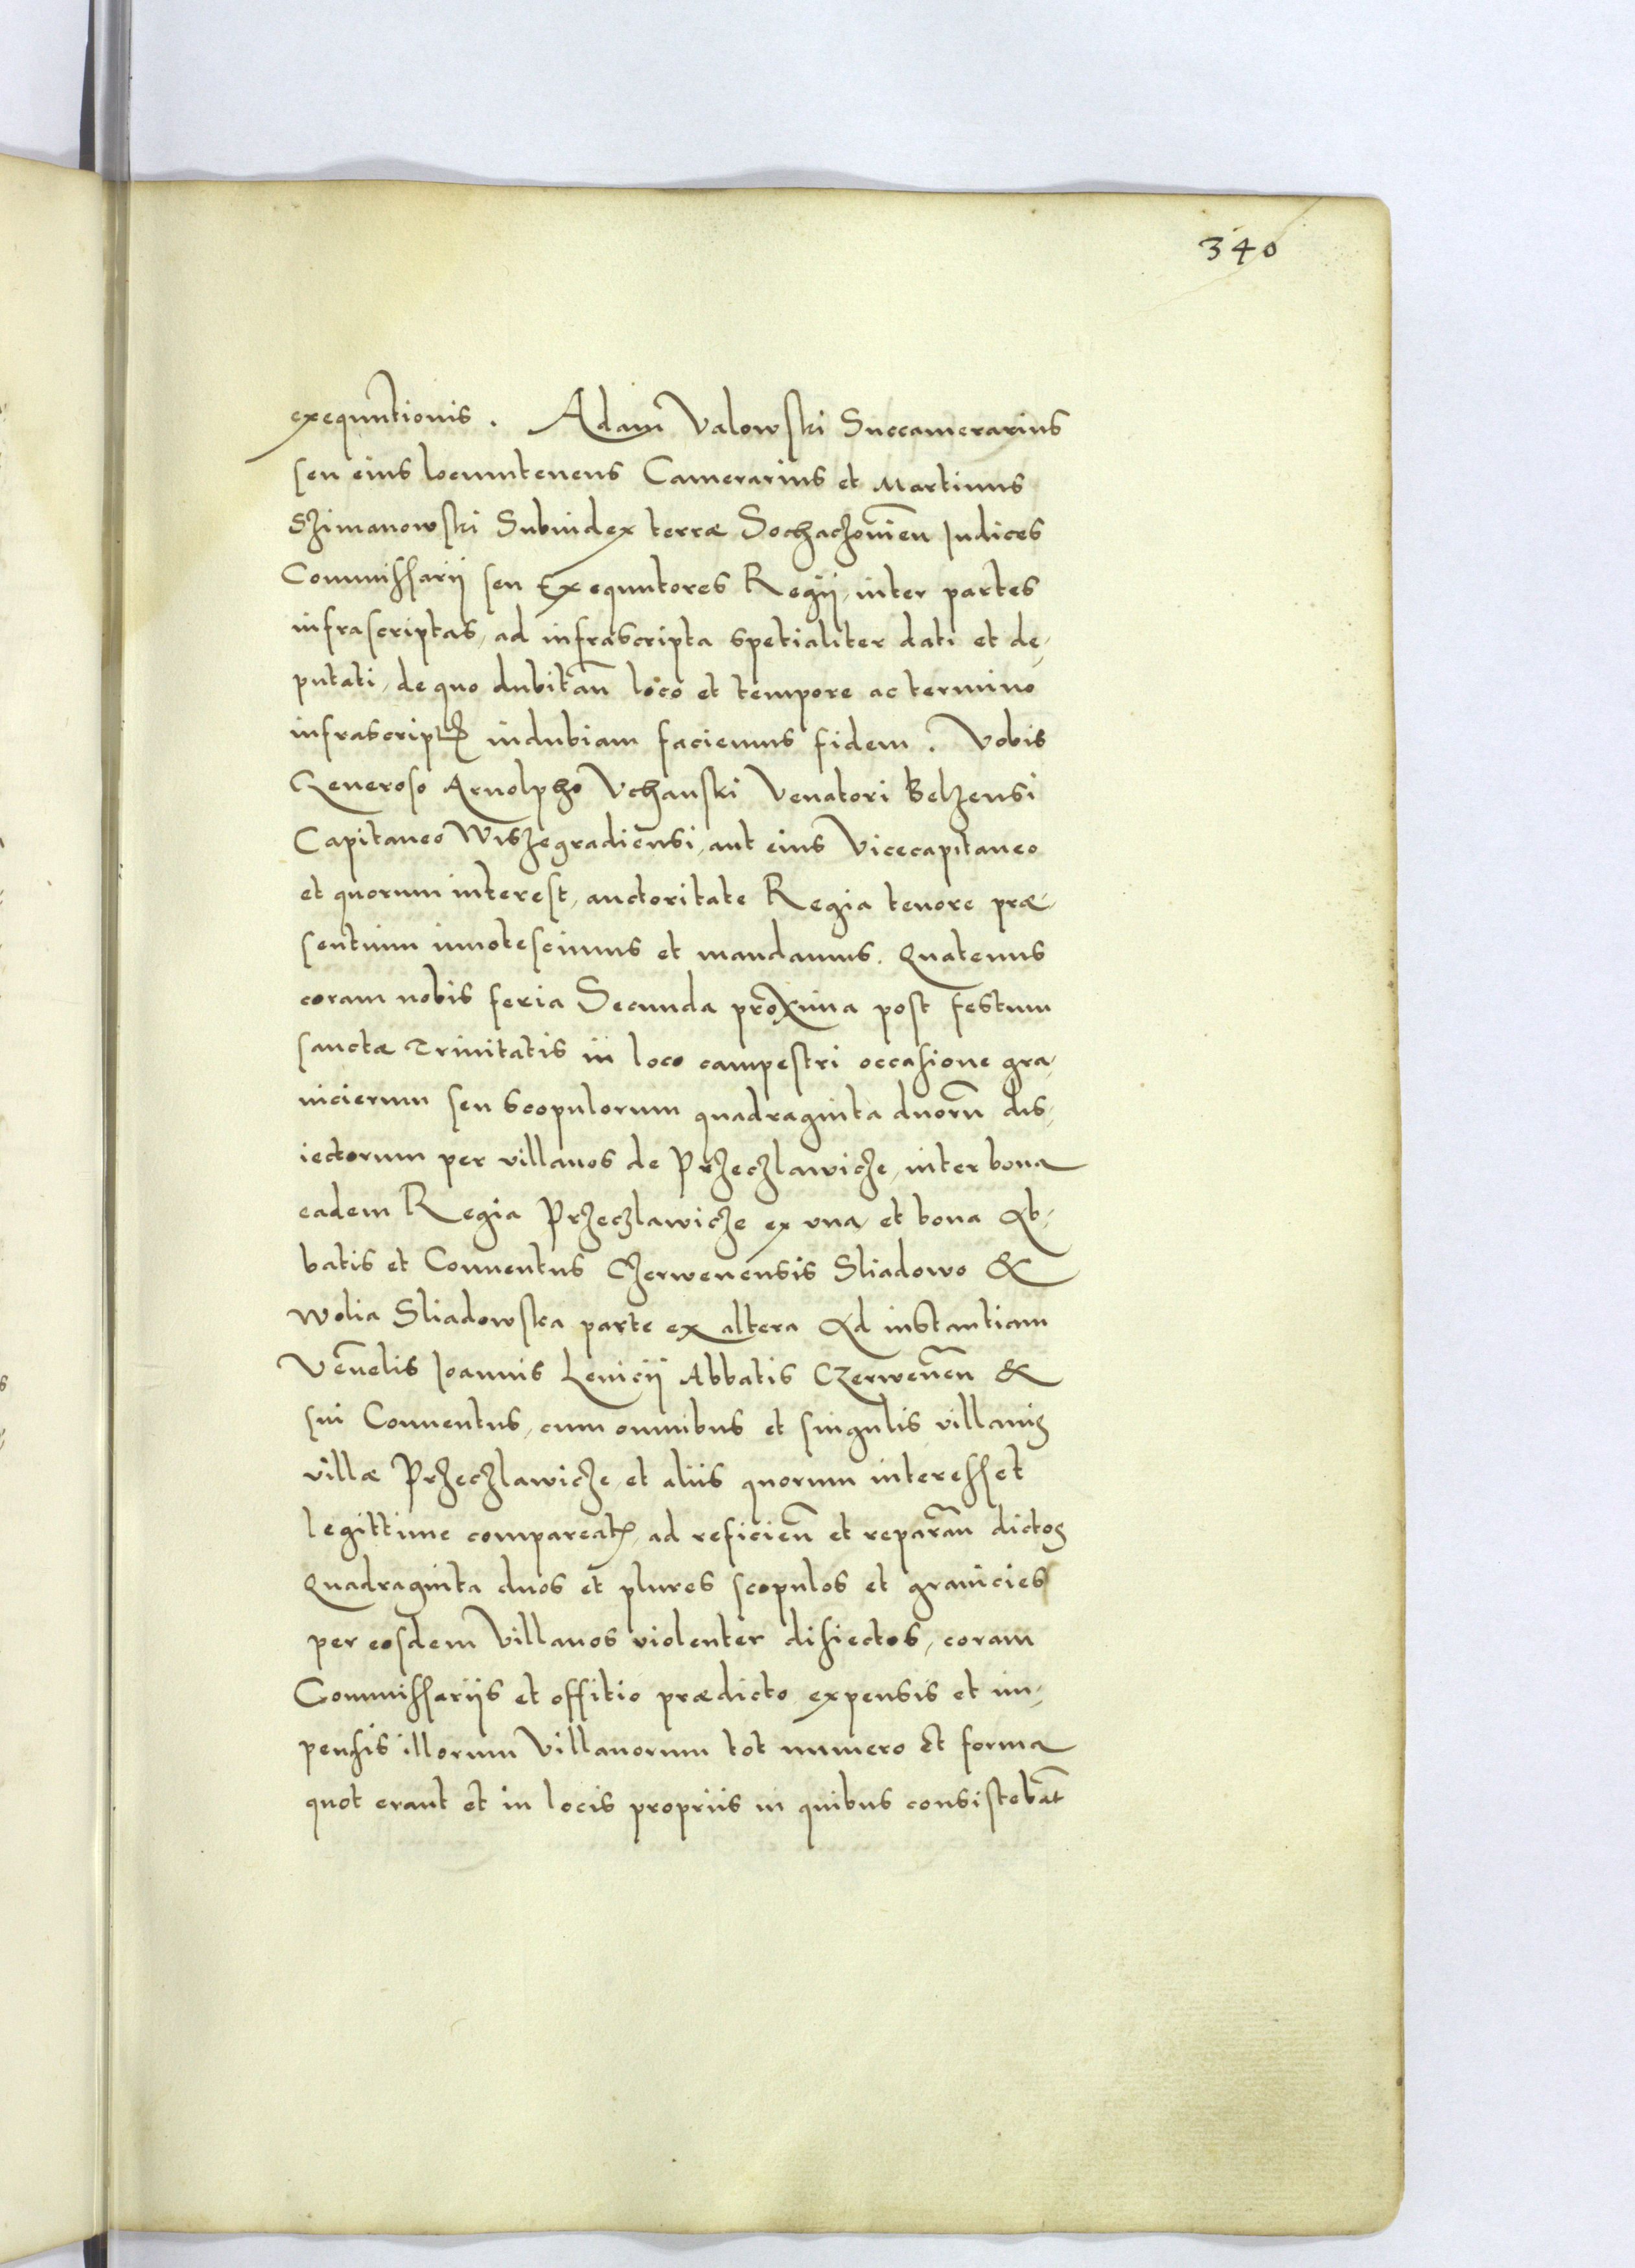 340
exequutionis. Adam Valowski Succamerarius
seu eius locumtenens Camerarius et Martinus
Szimanowski Subiudex terræ Sochaczouień Judices
Commissarij seu Exequutores Regij, inter partes
infrascriptas, ad infrascripta spetialiter dati et de,
putati, de quo dubitañ loco et tempore ac termino
infrascriptꝭ indubiam faciemus fidem. Vobis
Generoso Arnolpho Vchanski Venatori Belzensi
Capitaneo Wiszegradiensi, aut eius Vicecapitaneo
et quorum interest, auctoritate Regia tenore præ,
sentium innotescimus et mandamus. Quatenus
coram nobis feria Secunda proxima post festum
sanctæ Trinitatis in loco campestri occasione gra,
nicierum seu scopulorum quadraginta duorū dis,
iectorum per villanos de Przeczlawicze, inter bona
eadem Regia Przeczlawicze ex vna, et bona Ab,
batis et Conuentus Czerwenensis Sliadowo &
Wolia Sliadowska parte ex altera Ad instantiam
Veñelis Joannis Lenicij Abbatis Czerweneñ &
sui Conuentus, cum omnibus et singulis villanis
villæ Przeczlawicze, et aliis quorum interesset
legittime compareatꝭ, ad reficieñ et reparañ dictos
Quadraginta duos et plures scopulos et granicies
per eosdem Villanos violenter disiectos, coram
Commissariis et offitio prædicto, expensis et im,
pensis illorum Villanorum tot numero et forma
quot erant et in locis propriis in quibus consistebāt